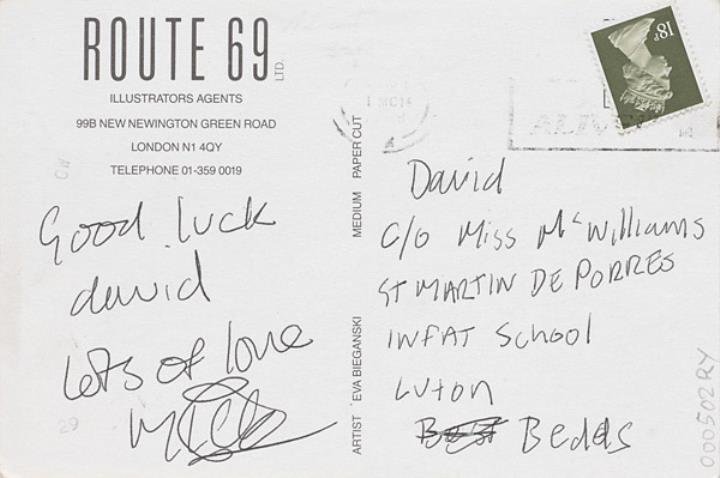 ROUTE 69 LTD.
ILLUSTRATORS AGENTS
99B NEW NEWINGTON GREEN ROAD
LONDON N1 4QY
TELEPHONE 01-359 0019
Good luck
david
lots of love
Mick
29
ARTIST EVA BIEGANSKI MEDIUM PAPER CUT
18P
David
c/o Miss McWilliams
ST MARTIN DE PORRES
INFAT School
Luton
Bedds
000502RY